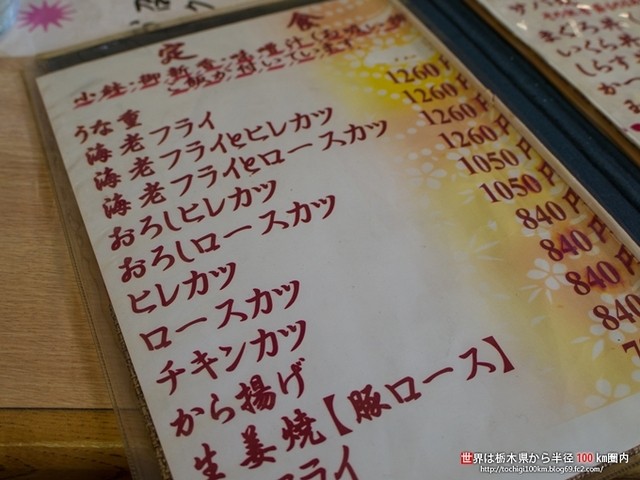 定食
小鉢・御新香・味噌汁(お吸い物)・
ご飯が付いています
うな重
海老フライ
海老フライとヒレカツ
海老フライとロースカツ
おろしヒレカツ
おろしロースカツ
ヒレカツ
ロースカツ
チキンカツ
から揚げ
生姜焼【豚ロース】
フライ
1260円
1260円
1260円
1260円
1050円
1050円
840円
840円
840円
840
まぐろ丼
いくら丼
しらす
世界は栃木県から半径100km圏内
http://tochigi100km.blog69.fc2.com/